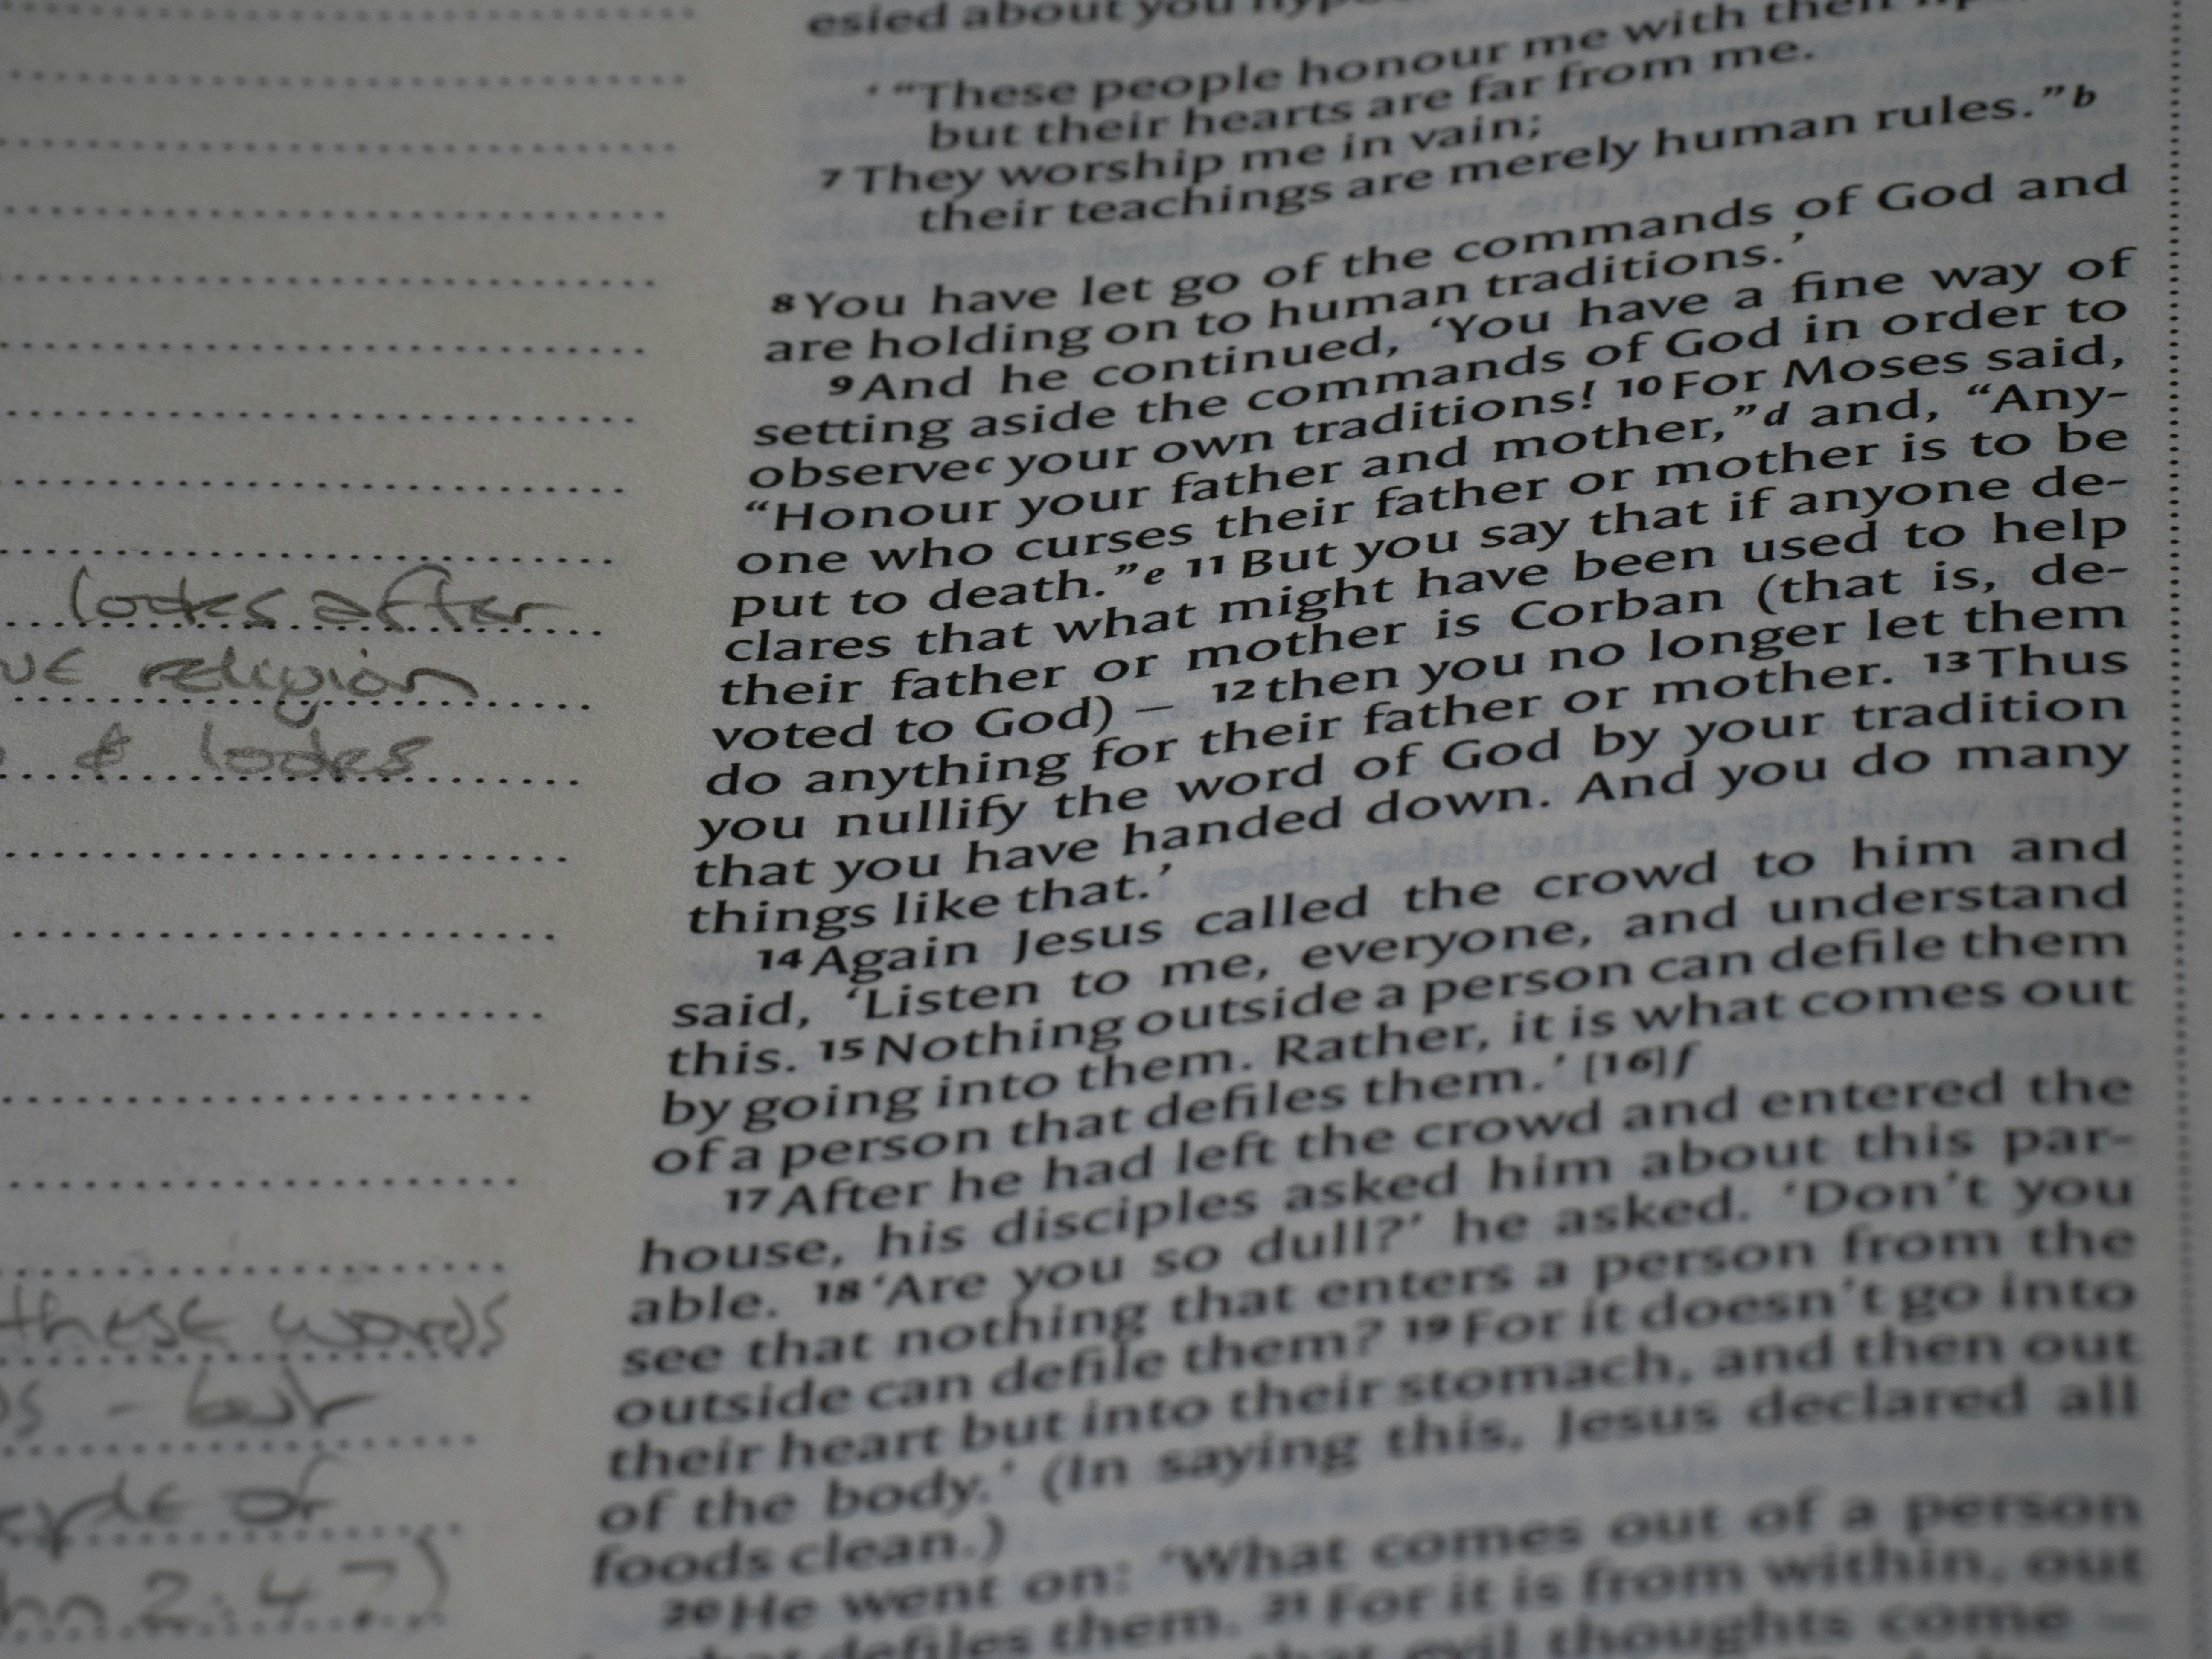 looks after
religion
& looks
these words
- but
of
2:47)
esied about you
‘ “These people honour me with their
but their hearts are far from me.
7 They worship me in vain;
their teachings are merely human rules.” b
8 You have let go of the commands of God and
are holding on to human traditions.’
9 And he continued, ‘You have a fine way of
setting aside the commands of God in order to
observe c your own traditions! 10 For Moses said,
“Honour your father and mother,” d and, “Any-
one who curses their father or mother is to be
put to death.” e 11 But you say that if anyone de-
clares that what might have been used to help
their father or mother is Corban (that is, de-
voted to God) – 12 then you no longer let them
do anything for their father or mother. 13 Thus
you nullify the word of God by your tradition
that you have handed down. And you do many
things like that.’
14 Again Jesus called the crowd to him and
said, ‘Listen to me, everyone, and understand
this. 15 Nothing outside a person can defile them
by going into them. Rather, it is what comes out
of a person that defiles them.’ [16] f
17 After he had left the crowd and entered the
house, his disciples asked him about this par-
able. 18 ‘Are you so dull?’ he asked. ‘Don’t you
see that nothing that enters a person from the
outside can defile them? 19 For it doesn’t go into
their heart but into their stomach, and then out
of the body.’ (In saying this, Jesus declared all
foods clean.)
20 He went on: ‘What comes out of a person
defiles them. 21 For it is from within, out
that evil thoughts come –